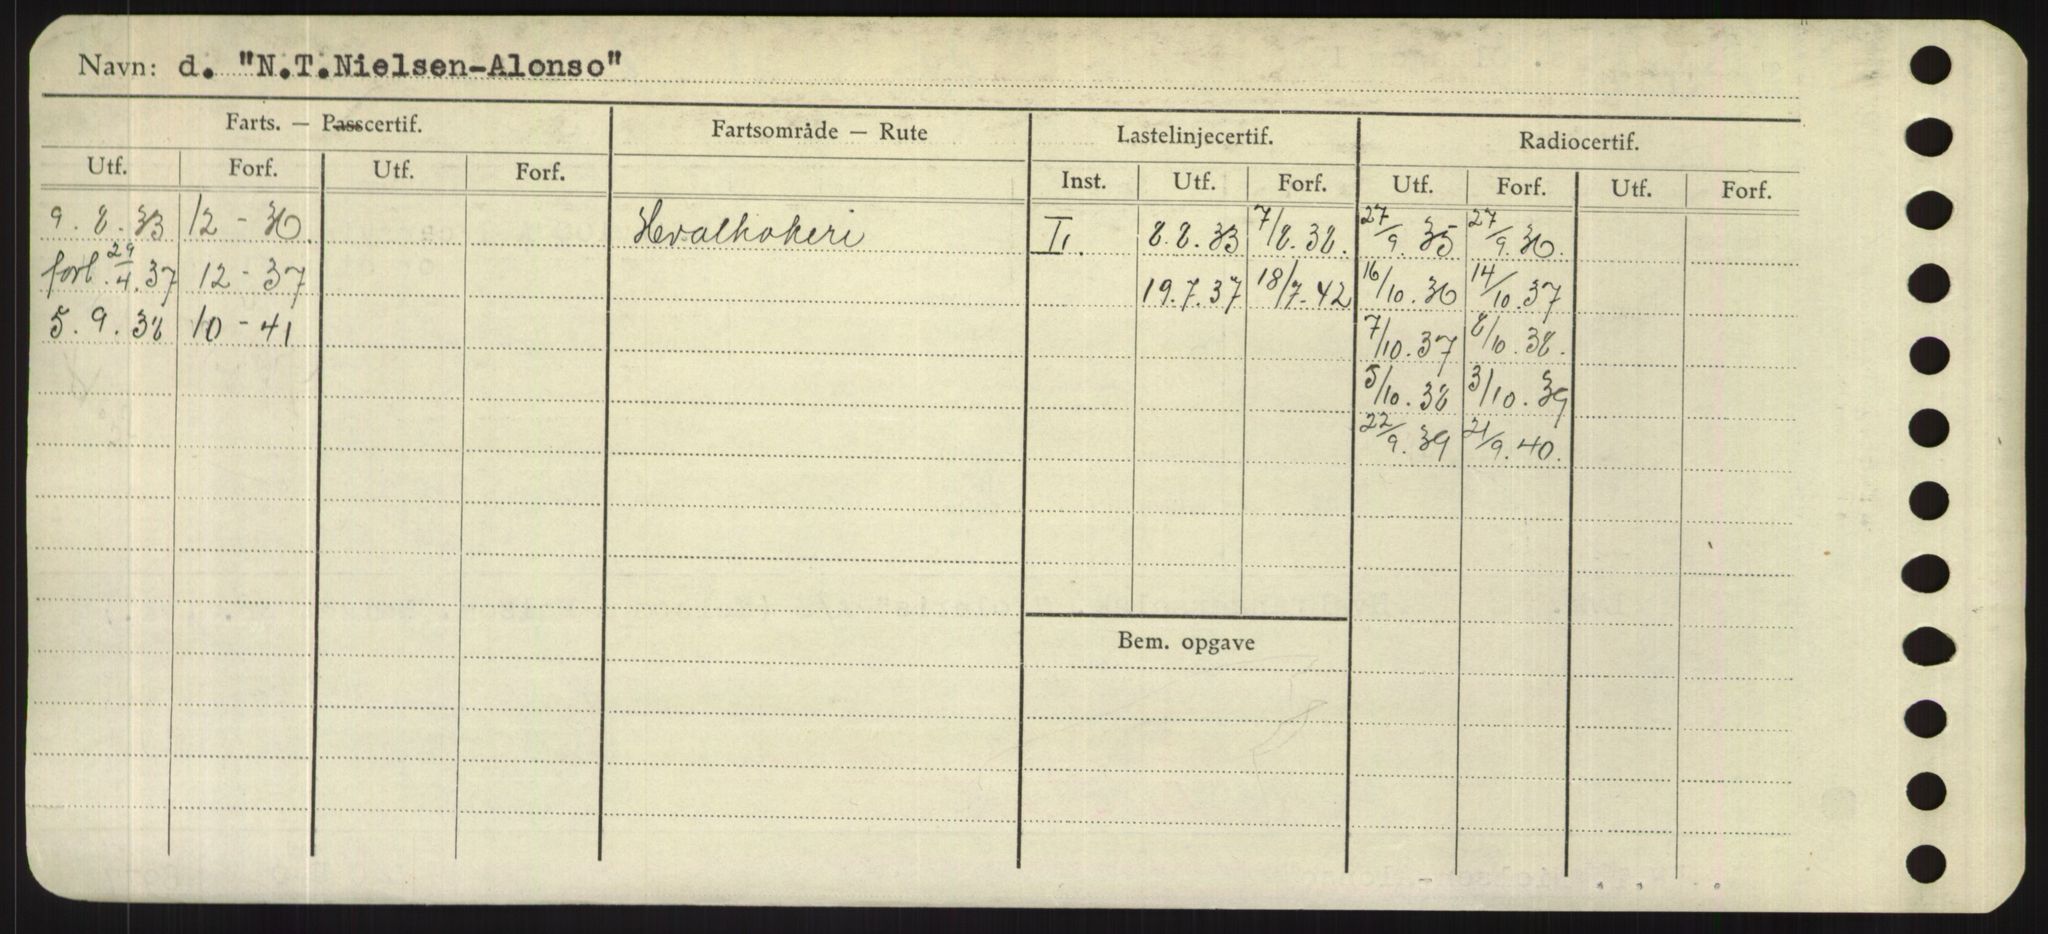 Navn: d. "N.T.Nielsen-Alonso"
Farts. — Passcertif. Fartsområde — Rute Lastelinjecertif. Radiocertif.
Utf. Forf. Utf. Forf. Inst. Utf. Forf. Utf. Forf. Utf. Forf.
9.8.33 12-36. Hvalkokeri I. 8.8.33 7/8.38. 27/9.35 27/9.36.
forl. 29/4.37 12-37 19.7.37 18/7.42 16/10.36 14/10.37
5.9.38 10-41 7/10.37 8/10.38.
5/10.38 3/10.39
22/9.39 21/9.40.
Bem. opgave